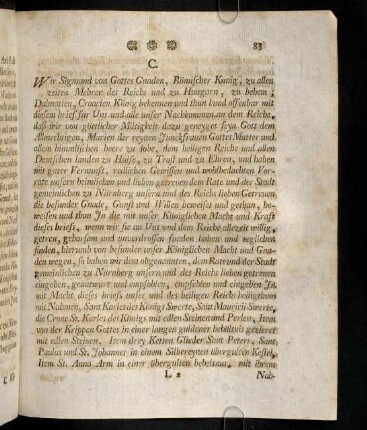 83
C.
Wir Sigmund von Gottes Gnaden, Römischer Kunig, zu allen
zeiten Mehrer des Reichs und zu Hungorn, zu behem,
Dalmatien, Croacien König bekennen und thun kund offenbar mit
diesem brief für Uns und alle unser Nachkommen an dem Reiche,
daß wir von göttlicher Miltigkeit dazu geneyget seyn Gott dem
Allmechtigen, Marien der reynen Junckfrauen Gottes Mutter und
allen himmlischen heere zu lobe, dem heiligen Reiche und allen
Deutschen landen zu Hülfe, zu Trost und zu Ehren, und haben
mit guter Vernunft, redlichen Gewissen und wohlbedachten Vor-
rate unsern heimlichen und lieben getreuen dem Rate und der Stadt
gemeinlichen zu Nürnberg unsern und des Reichs lieben Getreuen,
die besunder Gnade, Gunst und Willen beweiset und gethan, be-
weisen und thun In die mit unser Königlichen Macht und Kraft
dieses briefs, wenn wir sie an Uns und dem Reiche allezeit willig,
getreu, gehorsam und unverdrossen funden haben und teglichen
finden, hierumb von besunder unser Königlichen Macht und Gna-
den wegen, so haben wir dem obgenannten, dem Rate und der Stadt
gemeinlichen zu Nürnberg unsern und des Reichs lieben getreuen
eingeben, geantwurt und empfohlen, empfehlen und eingeben In
mit Macht dieses briefs unser und des heiligen Reichs heiligthum
mit Nahmen, Sant Karles des Königs Swerte, Sant Mauricii Swerte,
die Crone St. Karles des Königs mit edlen Steinen und Perlen, Item
von der Krippen Gottes in einer langen guldener behältnis gezieret
mit edlen Steinen, Item drey Ketten Glieder Sant Peters, Sant
Paulus und St. Johannes in einem Silbereynen übergulten Kestel,
Item St. Anna Arm in einer übergulten behelmus, mit ihrem
L 2
Nah-